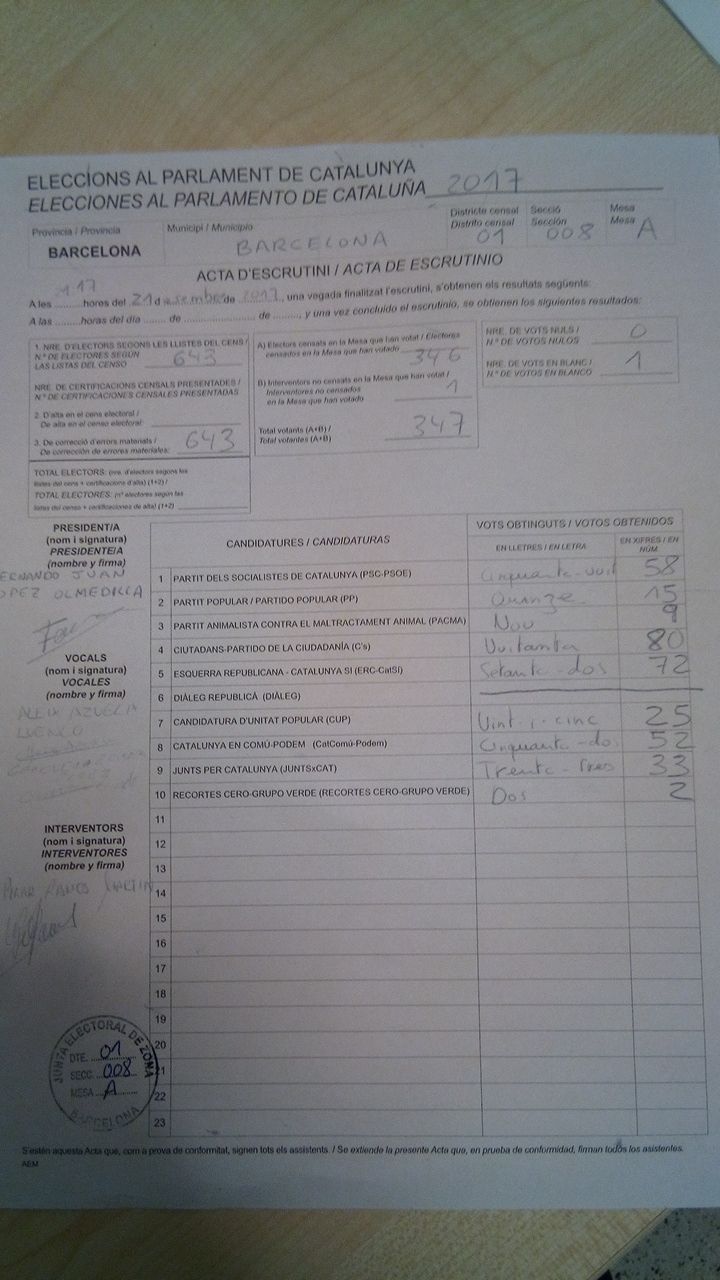 ELECCIONS AL PARLAMENT DE CATALUNYA
ELECCIONES AL PARLAMENTO DE CATALUÑA 2017
Província / Provincia
BARCELONA
Municipi / Municipio
BARCELONA
Districte censal
Distrito censal
01
Secció
Sección
008
Mesa
Mesa
A
ACTA D'ESCRUTINI / ACTA DE ESCRUTINIO
A les ........hores del 21 de desembre de 2017, una vegada finalitzat l'escrutini, s'obtenen els resultats següents:
A las .........horas del día ...... de ............... de ........, y una vez concluido el escrutinio, se obtienen los siguientes resultados:
1. NRE. D'ELECTORS SEGONS LES LLISTES DEL CENS /
N.º DE ELECTORES SEGÚN
LAS LISTAS DEL CENSO 643
NRE. DE CERTIFICACIONS CENSALS PRESENTADES /
N.º DE CERTIFICACIONES CENSALES PRESENTADAS
2. D'alta en el cens electoral /
De alta en el censo electoral:
3. De correcció d'errors materials /
De corrección de errores materiales: 643
TOTAL ELECTORS: (nre. d'electors segons les
llistes del cens + certificacions d'alta) (1+2) /
TOTAL ELECTORES: (nº electores según las
listas del censo + certificaciones de alta) (1+2)
A) Electors censats en la Mesa que han votat / Electores
censados en la Mesa que han votado 346
B) Interventors no censats en la Mesa que han votat /
Interventores no censados
en la Mesa que han votado 1
Total votants (A+B) /
Total votantes (A+B) 347
NRE. DE VOTS NULS /
N.º DE VOTOS NULOS 0
NRE. DE VOTS EN BLANC /
N.º DE VOTOS EN BLANCO 1
PRESIDENT/A
(nom i signatura)
PRESIDENTE/A
(nombre y firma)
ERNANDO JUAN
OPEZ OLMEDILLA
VOCALS
(nom i signatura)
VOCALES
(nombre y firma)
INTERVENTORS
(nom i signatura)
INTERVENTORES
(nombre y firma)
PILAR RAMOS MARTIN
CANDIDATURES / CANDIDATURAS
VOTS OBTINGUTS / VOTOS OBTENIDOS
EN LLETRES / EN LETRA
EN XIFRES / EN NÚM.
1 PARTIT DELS SOCIALISTES DE CATALUNYA (PSC-PSOE) Cinquanta-vuit 58
2 PARTIT POPULAR / PARTIDO POPULAR (PP) Quinze 15
3 PARTIT ANIMALISTA CONTRA EL MALTRACTAMENT ANIMAL (PACMA) Nou 9
4 CIUTADANS-PARTIDO DE LA CIUDADANÍA (C's) Vuitanta 80
5 ESQUERRA REPUBLICANA - CATALUNYA SÍ (ERC-CatSÍ) Setanta-dos 72
6 DIÀLEG REPUBLICÀ (DIÀLEG)
7 CANDIDATURA D'UNITAT POPULAR (CUP) Vint-i-cinc 25
8 CATALUNYA EN COMÚ-PODEM (CatComú-Podem) Cinquanta-dos 52
9 JUNTS PER CATALUNYA (JUNTSxCAT) Trenta-tres 33
10 RECORTES CERO-GRUPO VERDE (RECORTES CERO-GRUPO VERDE) Dos 2
11
12
13
14
15
16
17
18
19
20
21
22
23
JUNTA ELECTORAL DE ZONA
DTE. 01
SECC. 008
MESA A
BARCELONA
S'estén aquesta Acta que, com a prova de conformitat, signen tots els assistents. / Se extiende la presente Acta que, en prueba de conformidad, firman todos los asistentes.
AEM